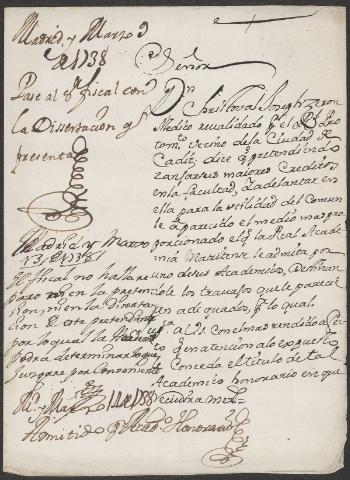 Madrid y Marzo 9
de 1738
Pase al Sr fiscal con
la Dissertacion qe
presenta
Señor
Dn Christoval Joseph
Medico revalidado por el Rl Pro
tomto, vezino de la Ciudad de
Cadiz, dice qe pretendiendo
zanjar sus maiores Creditos
en la facultad, i adelantar en
ella para la utilidad del Comun
le a parecido el medio mas pro
porcionado el qe la Real Acade
mia Matritense le admita por
uno de sus Academicos, Destinan
dole los travajos que le parecie
ren adequados, por lo qual
a V.S. con el mas rendido
qe en atencion a lo expuesto
Conceda el titulo de tal
Academico honorario en que
recivira mrd
Madrid y Marzo
13 de 1738
El fiscal no halla re
paro en la preten
sion, ni en la Diserta
cion de este pretendiente
por lo qual la
podra determinar lo que
juzgare por conveniente
Md y Marzo 14 de 1738
Admitido por Acadco Honorario